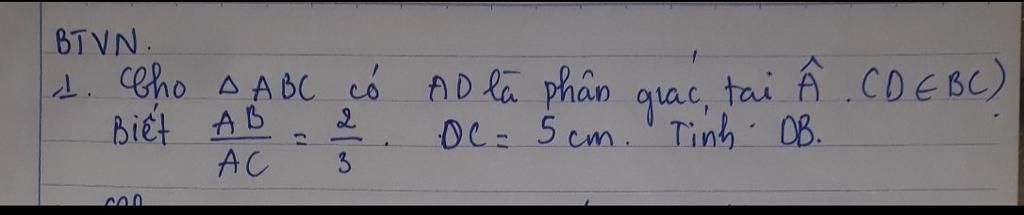 BTVN.
1. Cho △ ABC có AD là phân giác, tại Â. (D ∈ BC)
Biết AB/AC = 2/3. DC = 5 cm. Tính DB.